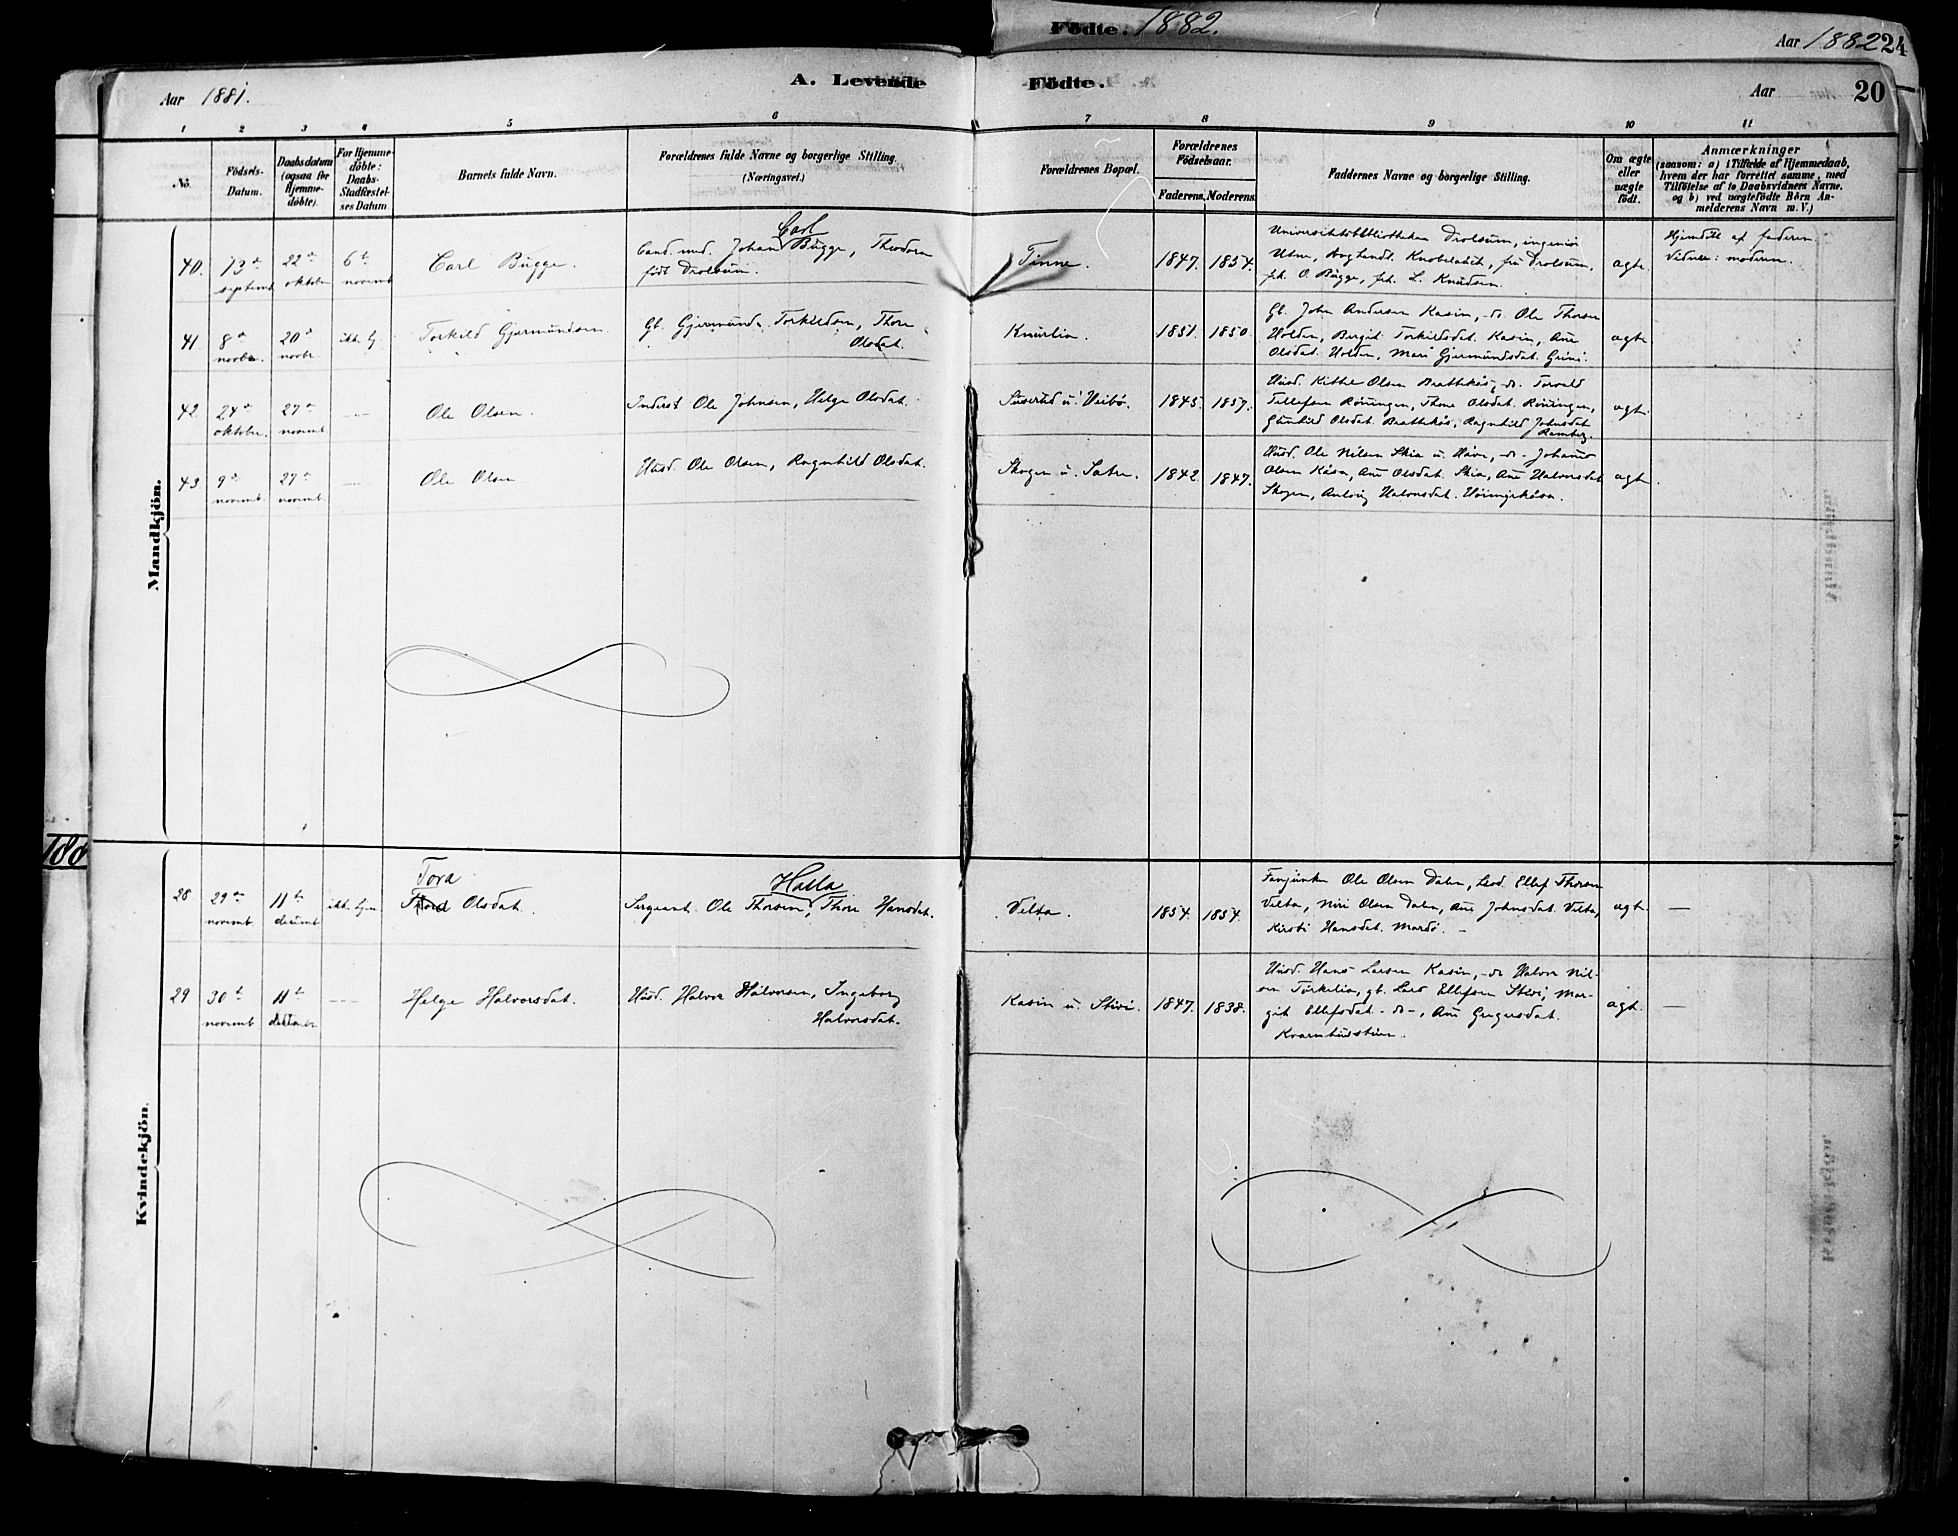 Födte. 1882.
Aar 1882 24
Aar 1881.
A. Levende Födte.
Aar 20
1 2 3 4 5 6 7 8 9 10 11
No.
Födsels-
Datum.
Daabsdatum
(ogsaa for
Hjemme-
döbte).
For Hjemme-
döbte:
Daabs-
Stadfæstel-
ses Datum.
Barnets fulde Navn.
Forældrenes fulde Navne og borgerlige Stilling.
(Næringsvei.)
Forældrenes Bopæl.
Forældrenes
Födselsaar.
Faderens. Moderens.
Faddernes Navne og borgerlige Stilling.
Om ægte
eller
uægte
födt.
Anmærkninger
(saasom: a) i Tilfælde af Hjemmedaab,
hvem der har forrettet samme, med
Tilföielse af to Daabsvidners Navne.
og b) ved uægtefödte Börn An-
melderens Navn m. V.)
Mandkjön.
40.
13de
septemb.
22de
oktober
6te
novemb.
Carl Bugge.
Carl
Cand. med. Johan Bugge, Theodora
født Drolsum.
Tinne.
1847. 1854.
Universitetsbibliothekar Drolsum, ingeniør
fru Drolsum,
frk. O. Bugge, frk. L. Knudsen.
ægte
Hjemdøbt af faderen.
Vidner: moderen.
41
8de
novbr.
20de
novbr
ikke hj.
Torkild Gjermundsen
Gb. Gjermund Torkildsen, Thone
Olsdat.
Knurlia.
1851. 1850.
Gb. John Andersen Kasin, do Ole Thorsen
Holden, Bergit Torkildsdat. Kasin, Ane
Olsdat. Holden, Mari Gjermundsdat. Grini.
ægte
42.
24de
oktober.
27de
novemb.
Ole Olsen.
Inderst Ole Johnsen, Helge Olsdat.
u. Veibø.
1845. 1857.
Husd. Kittel Olsen Brattekås, do. Torvald
Tellefsen Rønningen, Thone Olsdat. Rønningen,
Gunhild Olsdat. Brattekås, Ragnhild Johnsdat.
Ramberg.
ægt.
43
9de
novemb.
27de
novemb.
Ole Olsen
Husd. Ole Olsen, Ragnhild Olsdat.
Skogen u. Satre.
1842. 1847.
Husd. Ole Nilsen Skia u. Håve, do.
Olsen Kåsa, Ane Olsdat. Skia, Ane Halvorsdat
Skogen, Halvorsdat.
ægte.
Kvindekjön.
28
29de
novemb.
11te
decemb
ikke hjem
Tora
Olsdat.
Halla
Sergeant Ole Thorsen, Thone Hansdat.
Velta.
1854. 1854.
Fanjunker Ole Olsen Dalen, Leod. Ellef Thorsen
Velta, Olsen Dalen, Ane Johnsdat. Velta,
Kirsti Hansdat. Mardø. –
ægt. —
29
30te
novemb
11te
decembr.
Helge Halvorsdat.
Husd. Halvor Halvorsen, Ingeborg
Halvorsdat.
Kasin u. Stivi.
1847. 1838.
Husd. Hans Larsen Kasin, do Halvor Nil-
sen gb. Lars Ellefsen Stivi, Mar-
git Ellefsdat. do, Ane Gregersdat.
Kvarnhusstuen.
ægt. —
188